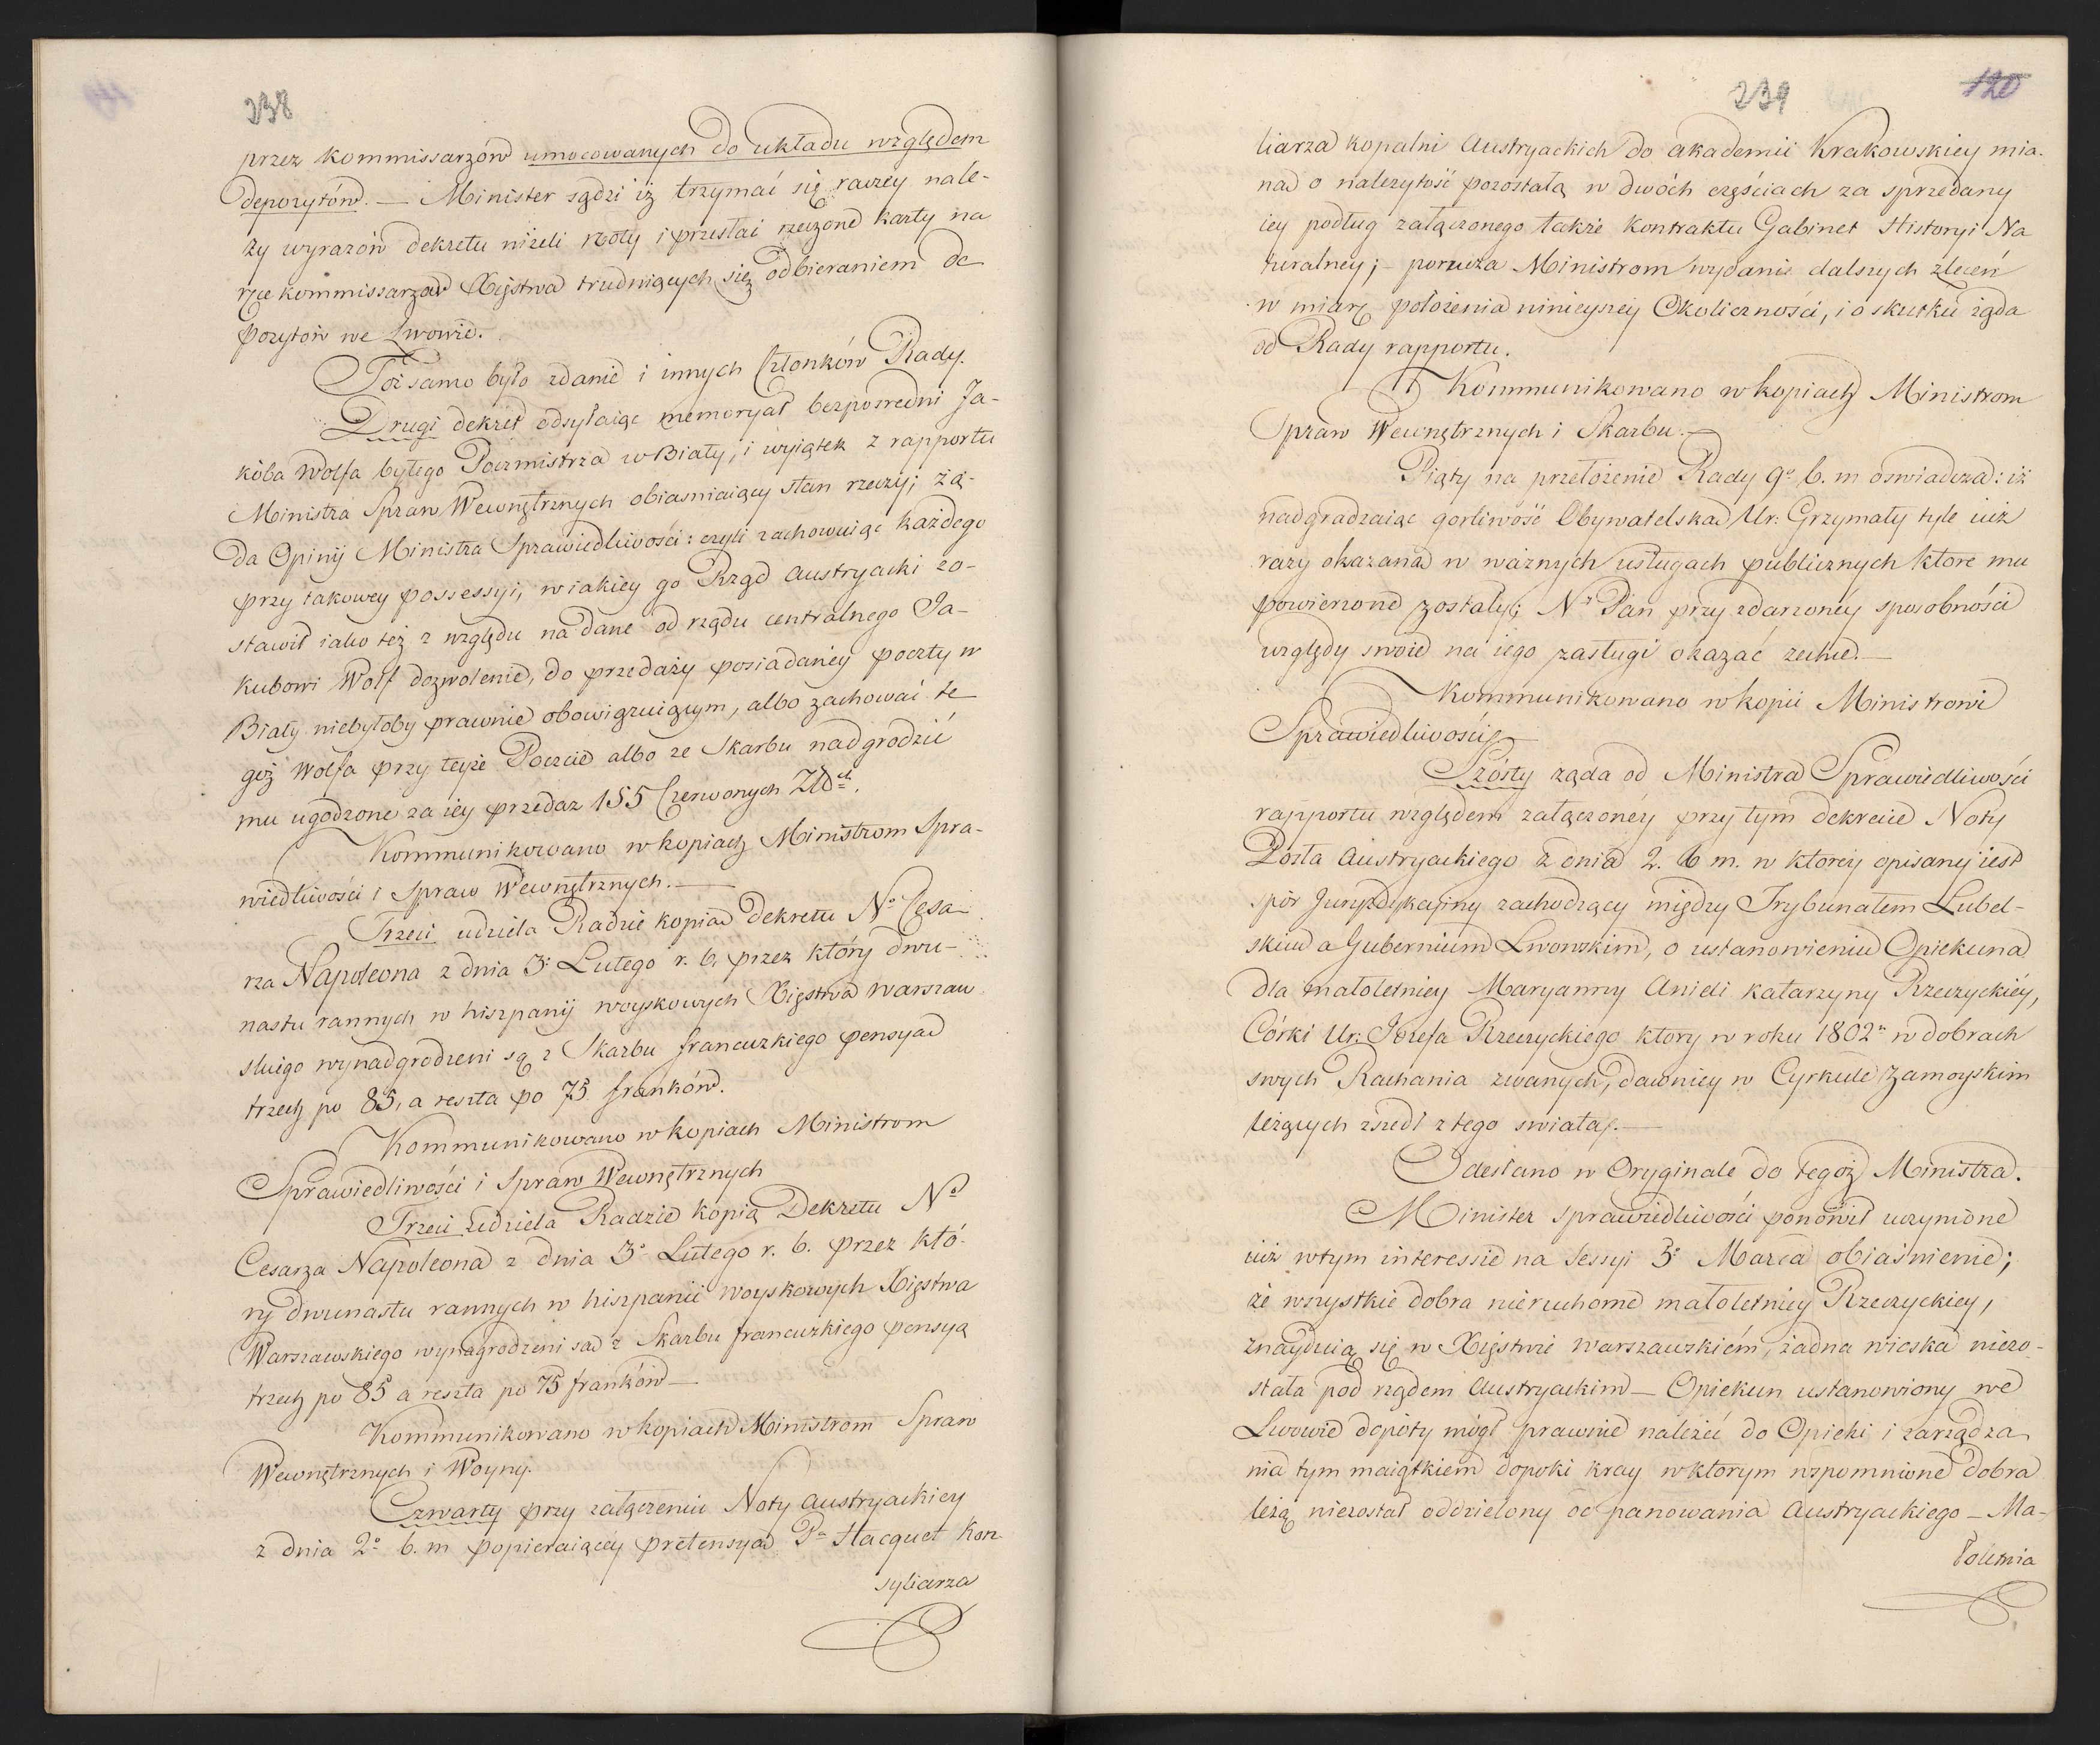 238
przez kommissarzów umocowanych do układu względem
depozytów. — Minister sądzi iż trzymać się raczey nale-
ży wyrazów dekretu niżeli noty i przesłać rzeczone karty na
ręce kommissarzów Xięstwa trudniących się odbieraniem de
pozytów we Lwowie.
Toż samo było zdanie i innych Członków Rady.
Drugi dekret odsyłaiąc memoryał bezpośredni Ja-
kóba Wolfa byłego Poczmistrza w Biały, i wyiątek z rapportu
Ministra Spraw Wewnętrznych obiasniaiący stan rzeczy; żą-
da Opinij Ministra Sprawiedliwości: czyli zachowuiąc każdego
przy takowey possessyi, w iakiey go Rząd Austryacki zo-
stawił iako też z względu na dane od rządu centralnego Ja-
kubowi Wolf dozwolenie, do przedaży posiadaney poczty w
Biały niebyłoby prawnie obowiązuiącym, albo zachować te
goż Wolfa przy teyże Poczcie albo ze Skarbu nadgrodzić
mu ugodzone za iey przedaz 155 Czerwonych Złd^ch.
Kommunikowano w kopiach Ministrom Spra-
wiedliwości i Spraw Wewnętrznych. —
Trzeci udziela Radzie kopia dekretu N° Cesa-
rza Napoleona z dnia 3° Lutego r. b. przez który dwu-
nastu rannych w hiszpanij woyskowych Xięstwa Warszaw
skiego wynadgrodzeni są z Skarbu francuzkiego pensyad
trzech po 85, a reszta po 75. franków.
Kommunikowano w kopiach Ministrom
Sprawiedliwości i Spraw Wewnętrznych
Trzeci Udziela Radzie kopią Dekretu N°
Cesarza Napoleona z dnia 3° Lutego r. b. przez któ-
ry dwunastu rannych w hiszpanii woyskowych Xięstwa
Warszawskiego wynagrodzeni sad z Skarbu francuzkiego pensyą
trzech po 85 a reszta po 75 franków —
Kommunikowano w kopiach Ministrom Spraw
Wewnętrznych i Woyny.
Czwarty przy załączeniu Noty austryackiey
z dnia 2° b. m popieraiącey pretensyad P^a Hacquet Kon
syliarza
239
120
liarza kopalni Austryackich do akademii Krakowskiey mia-
nad o należytość pozostałą w dwóch częściach za sprzedany
iey podług załączonego także kontraktu Gabinet Historyi Na
turalney; — porucza Ministrom wydanie dalszych zleceń
w miarę położenia ninieyszey Okoliczności, i o skutku żąda
od Rady rapportu.
Kommunikowano w kopiach Ministrom
Spraw Wewnętrznych i Skarbu. —
Piąty na przełożenie Rady 9° b. m oswiadcza: iż
nadgradzaiąc gorliwość Obywatelskad Ur: Grzymały tyle iuż
razy okazanad w ważnych usługach publicznych ktore mu
powierzone zostały; N^y Pan przy zdarzoney sposobności
względy swoie na iego zasługi okazać zechce. —
Kommunikowano w kopii Ministrowi
Sprawiedliwości. —
Szósty żąda od Ministra Sprawiedliwości
rapportu względem załączoney przy tym dekrecie Noty
Posła Austryackiego z dnia 2. b m. w ktorey opisany iest
spór Juryzdykcyiny zachodzący między Trybunałem Lubel-
skim a Gubernium Lwowskim, o ustanowieniu Opiekuna
dla małoletniey Maryanny Anieli katarzyny Rzeczyckiéy,
Córki Ur: Józefa Rzeczyckiego ktory w roku 1802^m w dobrach
swych Rachania zwanych, dawniey w Cyrkule Zamoyskim
leżących zszedł z tego swiata. —
Odesłano w Oryginale do tegoż Ministra.
Minister sprawiedliwości ponowił uczynione
iuż w tym interessie na Sessyi 3° Marca obiaśnienie;
że wszystkie dobra nieruchome małoletniey Rzeczyckiey,
znayduią się w Xięstwie warszawskiém, żadna wioska niezo-
stała pod rządem Austryackim — Opiekun ustanowiony we
Lwowie dopóty mógł prawnie należeć do Opieki i zarządza
nia tym maiątkiem dopoki kray w ktorym wspomnione dobra
leżą niezostał oddzielony od panowania Austryackiego — Ma-
łoletnia